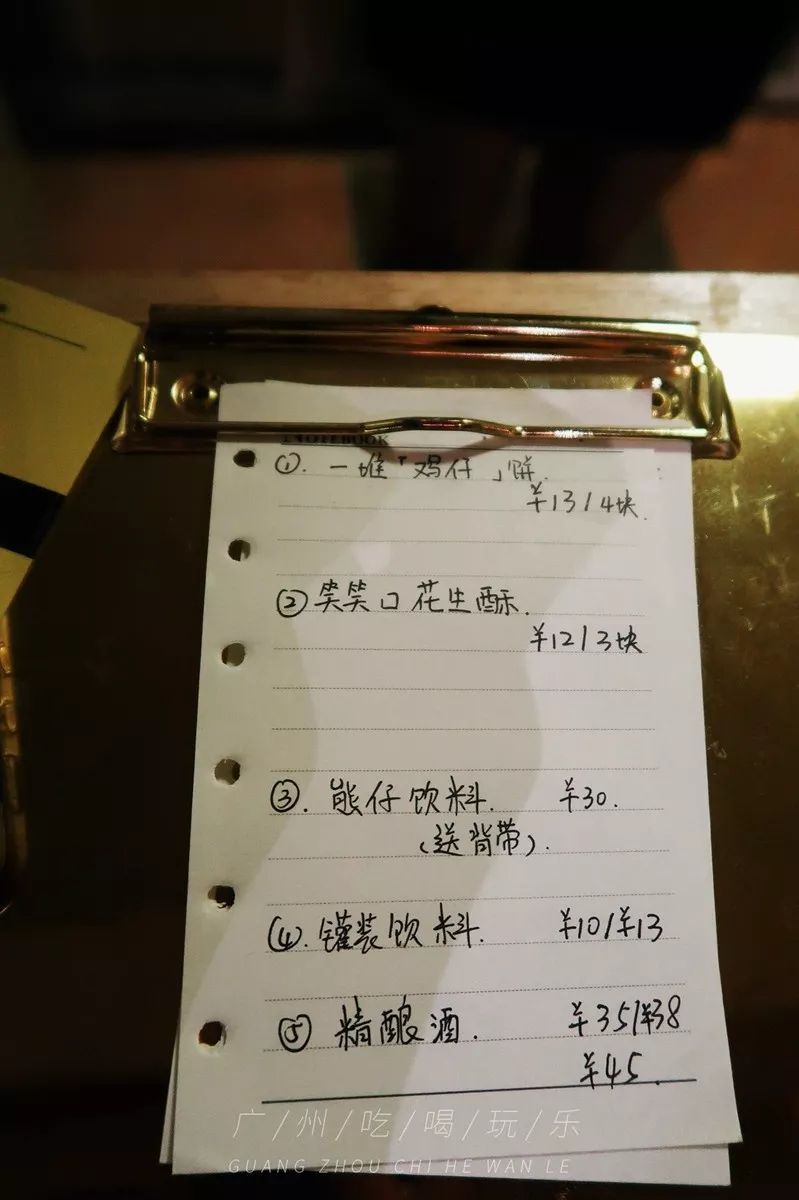 NOTEBOOK
①. 一堆「鸡仔」饼.
¥13/4块.
② 笑笑口花生酥.
¥12/3块
③. 熊仔饮料. ¥30.
(送背带).
④. 罐装饮料. ¥10/¥13
⑤ 精酿酒. ¥35/¥38
¥45.
广/州/吃/喝/玩/乐
GUANG ZHOU CHI HE WAN LE